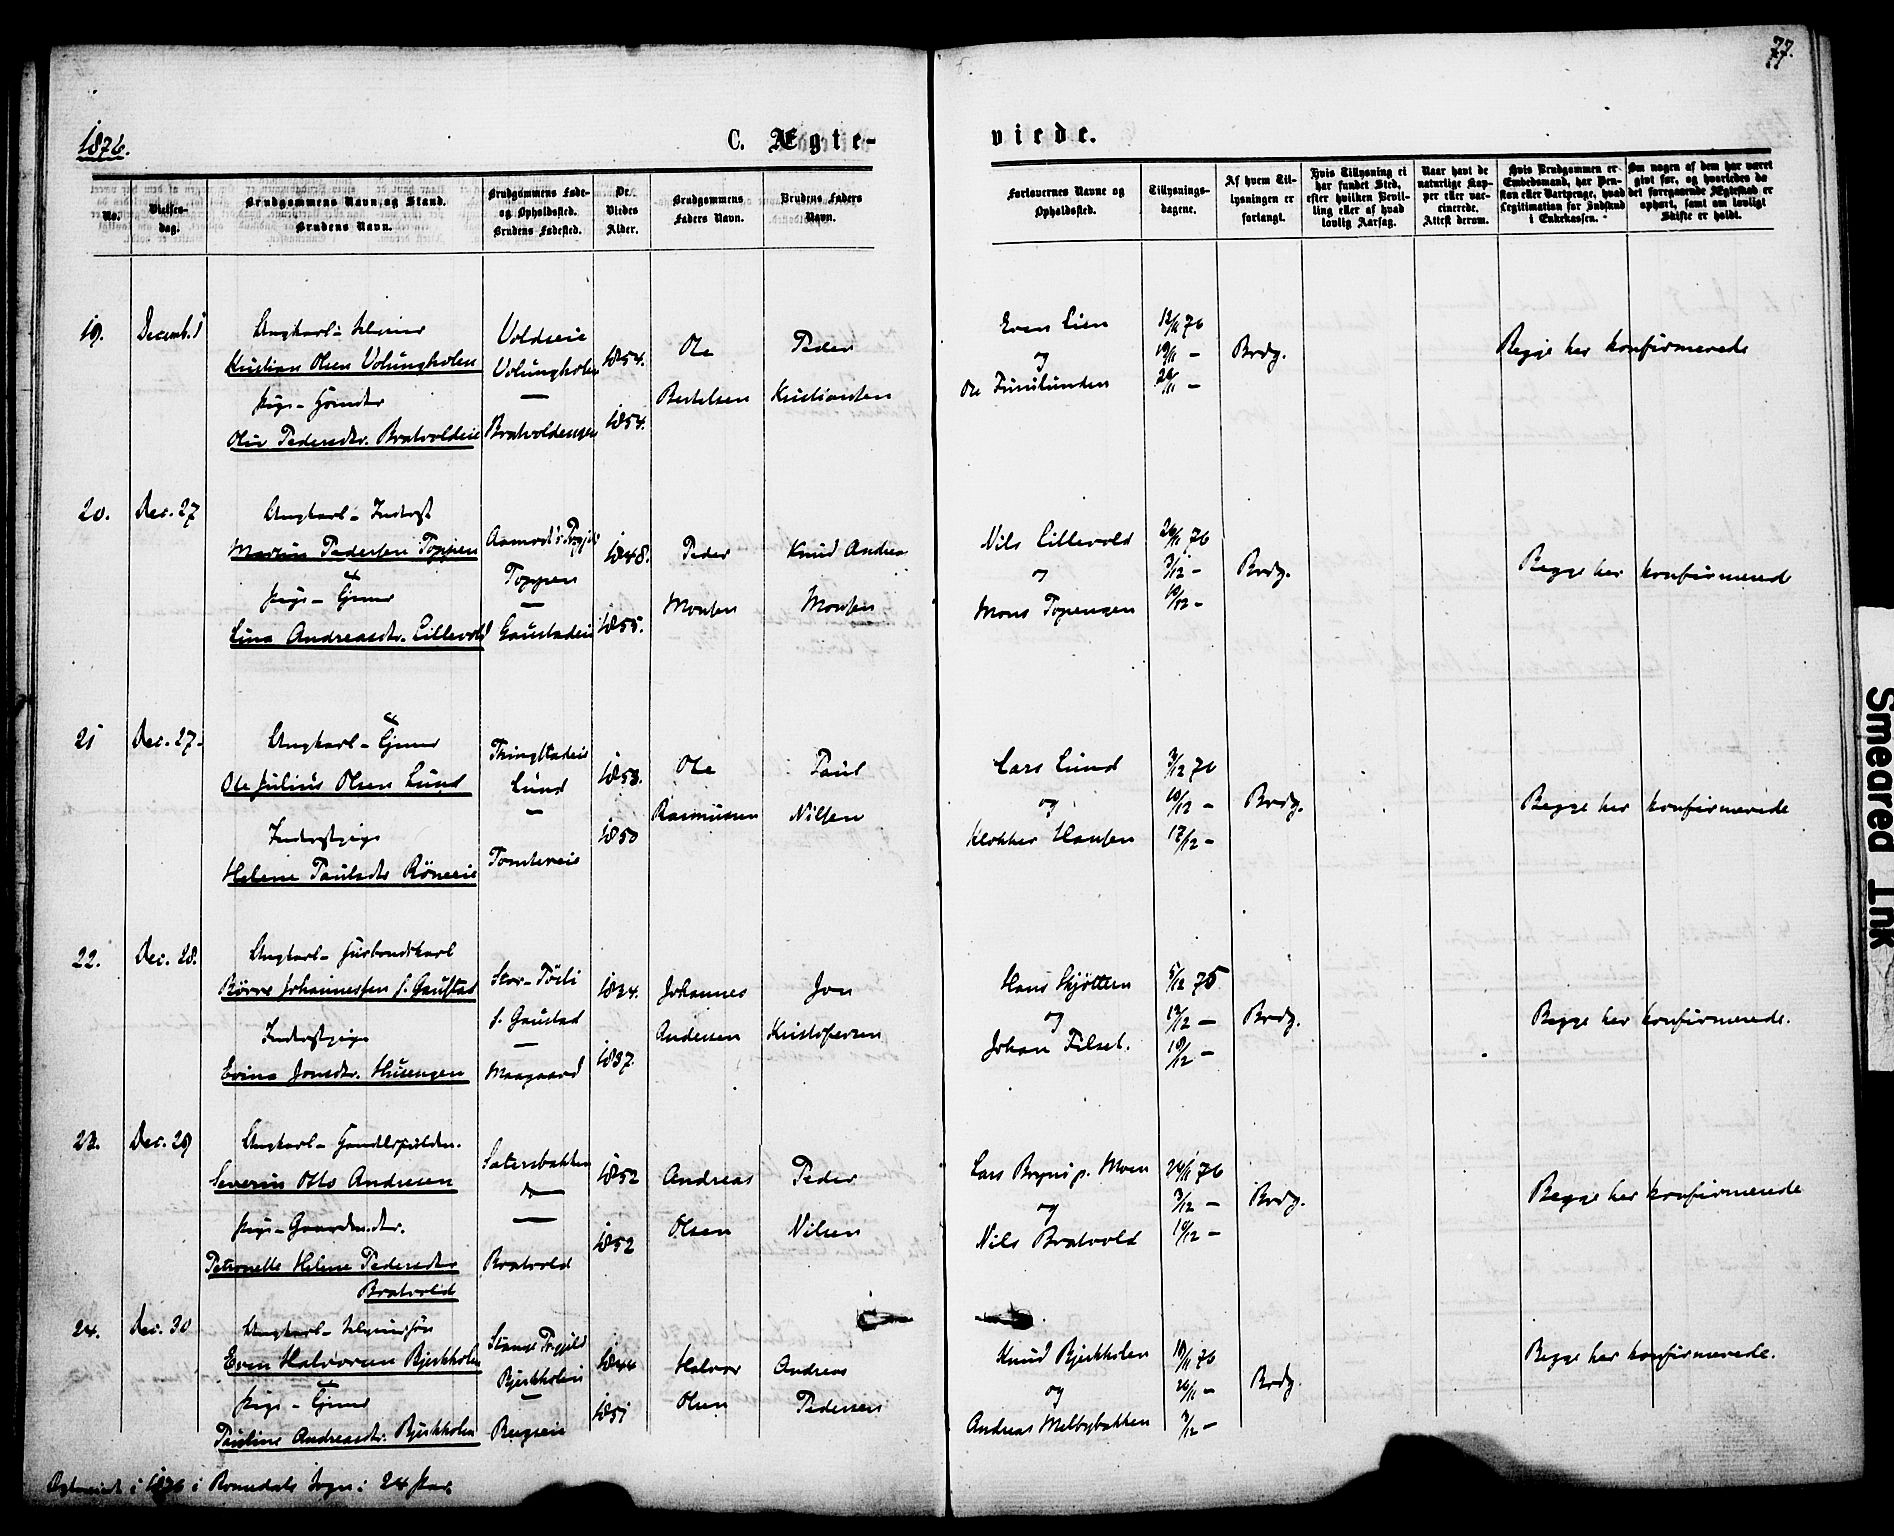 77.
1876.
C. Ægte-
viede.
No.
Vielses-
dag.
Brudgommens Navn, og Stand.
Brudens Navn.
Brudgommens Føde-
og Opholdssted.
Brudens Fødested.
De
Viedes
Alder.
Brudgommens
Faders Navn.
Brudens Faders
Navn.
Forlovernes Navne og
Opholdssted.
Tillysnings-
dagene.
Af hvem Til-
lysningen er
forlangt.
Hvis Tillysning ei
har fundet Sted,
efter hvilken Bevil-
ling eller af hvad
lovlig Aarsag.
Naar havt de
naturlige Kop-
per eller vac-
cinerede.
Attest derom.
Hvis Brudgommen er
Embedsmand, har Pen-
sion eller Vartpenge, hvad
Legitimation for Indskud
i Enkekassen.
Om nogen af dem har været
givt før, og hvorledes da
det foregaaende Ægteskab er
ophørt, samt om lovligt
Skifte er holdt.
19.
Decemb. 1
Ungkarl-
Kristian Olsen Volungholen
Pige-
Pedersdtr. Bratvoldeie
Voldseie
Volungholen
—
Bratvoldengen
1854.
1854.
Ole
Bertelsen
Peder
Kristiansen
Even Lien
og
Ole Furulunden
12/11 76
19/11 —
26/11 —
Brdg.
Begge her konfirmerede
20.
Dec. 27
Ungkarl- Inderst
Pedersen Toppen
Pige-
Lina Andreasdtr. Lillevold
Toppen
—
Gaustadeie
1848.
1855.
Peder
Monsen
Knud Andrea
Monsen
Nils Lillevold
og
Mons Topengen
26/11 76
3/12 —
10/12 —
Brdg.
Begge her konfirmerede
21
Dec. 27.
Ungkarl-
Ole Julius Olsen Lund
Inderstpige
Helene Paulsdtr Röneeie
Thingstadeie
Lund
—
Tomtereie
1853.
1850
Ole
Rasmussen
Paul
Nilsen
Lars Lund
og
Klokker Hansen
3/12 76
10/12 —
17/12 —
Brdg.
Begge her konfirmerede
22.
Dec. 28.
Ungkarl-
Börre Johannessen f. Gaustad
Inderstpige
Evina Jonsdtr. Husengen
f. Gaustad
—
Maagaard
1834.
1837.
Johannes
Andersen
Jon
Kristofersen
Hans Skjötten
og
Johan Filset.
5/12 75
12/12 —
19/12 —
Brdg.
Begge her konfirmerede.
23.
Dec. 29
Ungkarl-
Severin Otto Andresen
Pige- Gaardm.dtr.
Petronelle Helene Pedersdtr
Bratvold
Sætersbakken
—
Bratvold
1852
1852
Andreas
Olsen
Peder
Nilsen
Moen
og
Nils Bratvold
26/11 76
3/12 —
10/12 —
Brdg.
Begge her konfirmerede
24.
Dec. 30
Ungkarl-
Even Halvorsen Bjerkholen
Pige-
Pauline Andreasdtr. Bjerkholen
Stange Prgjeld
Bjerkholen
—
Bergseie
1844
1851
Halvor
Olsen
Andreas
Pedersen
Knud Bjerkholen
og
Andreas Melbybakken
19/11 76
26/11 —
3/12 —
Brdg.
Begge her konfirmerede.
i 1876 i Romedals Sogn: 24 Par
Smeared Ink